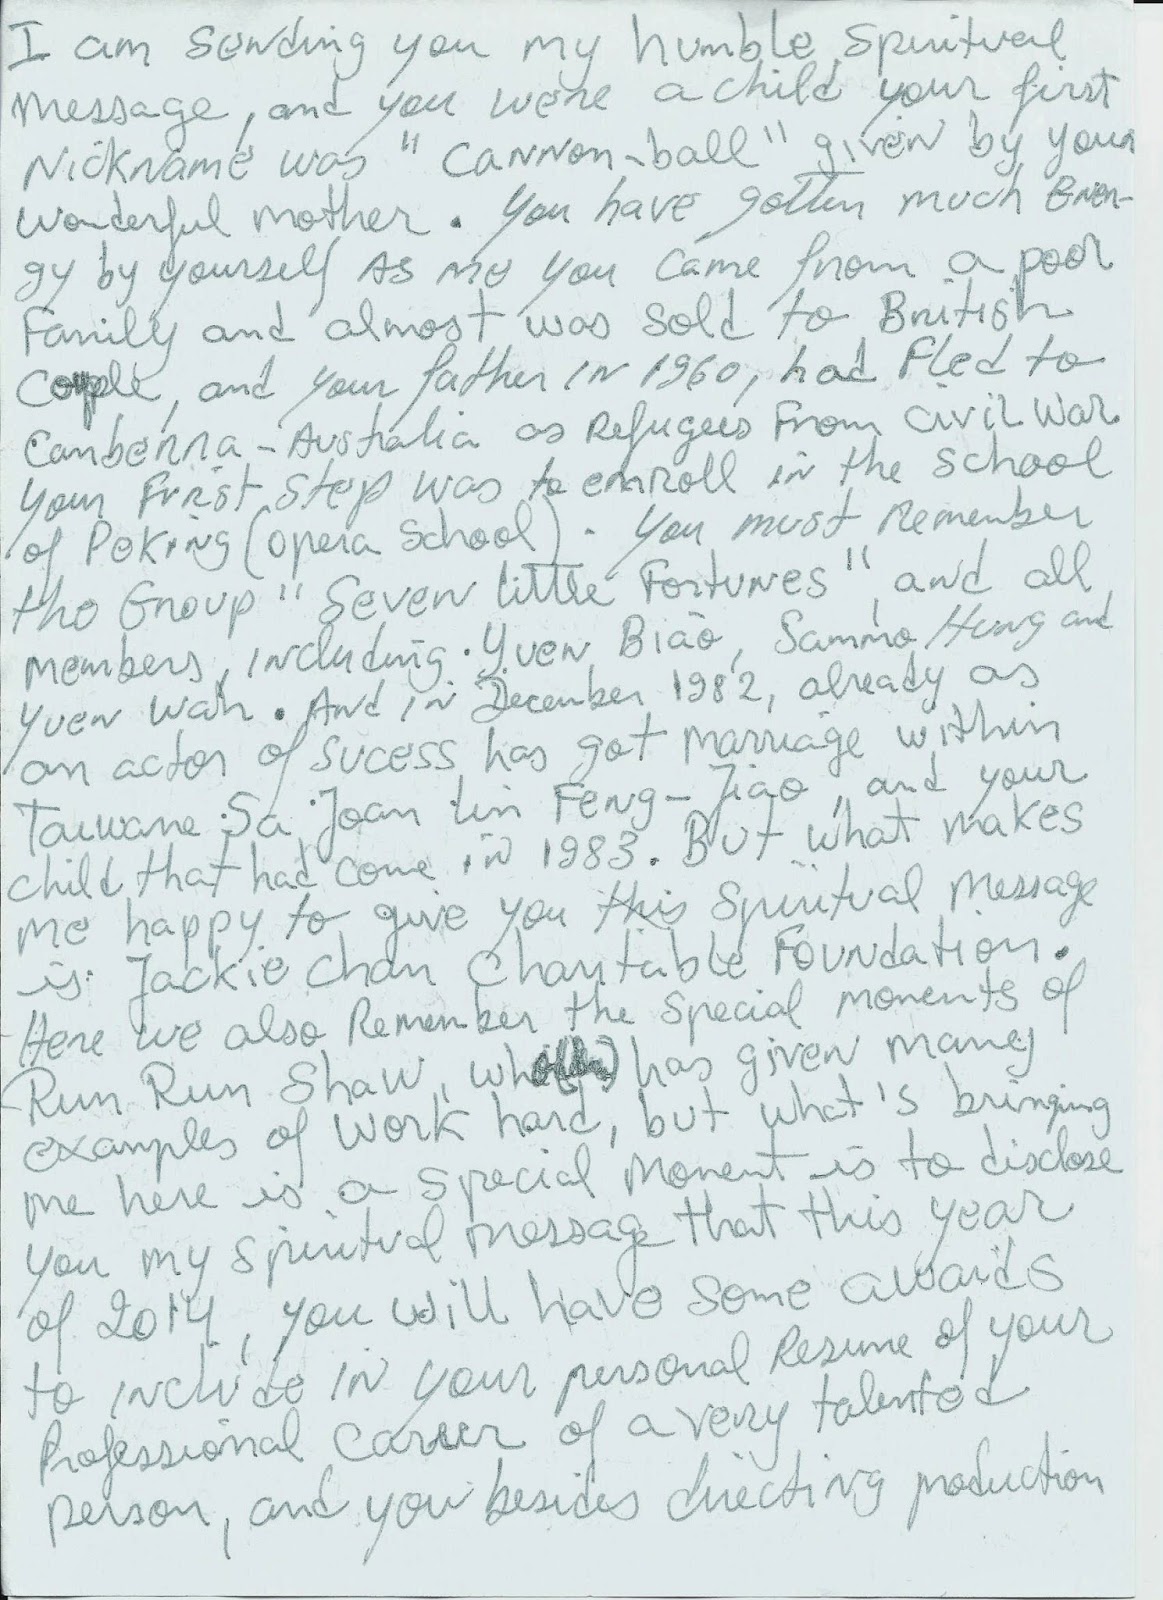 I am sending you my humble spiritual
message, and you were a child your first
Nickname was "Cannon-ball" given by your
wonderful mother. You have gotten much Ener-
gy by yourself As me you came from a poor
Family and almost was sold to British
Couple, and your father in 1960, had Fled to
Canberra-Australia as Refugees From civil war.
Your First step was to enroll in the school
of Peking (opera school). You must Remember
the Group "Seven little Fortunes", and all
members, including. Yuen Biao, Sammo Hung and
Yuen Wah. And in December 1982, already as
an actor of sucess has got marriage within
Taiwane Sa Joan Lin Feng-Jiao, and your
child that had come in 1983. But what makes
me happy to give you this spiritual message
is Jackie Chan Charitable Foundation.
Here we also Remember the special moments of
Run Run Shaw, has given maney
examples of work hard, but what's bringing
me here is a special moment is to disclose
you my spiritual messag that this year
of 2014, you will have some awards
to include in your personal Resume of your
Professional career of a very talented
person, and you besides directing production